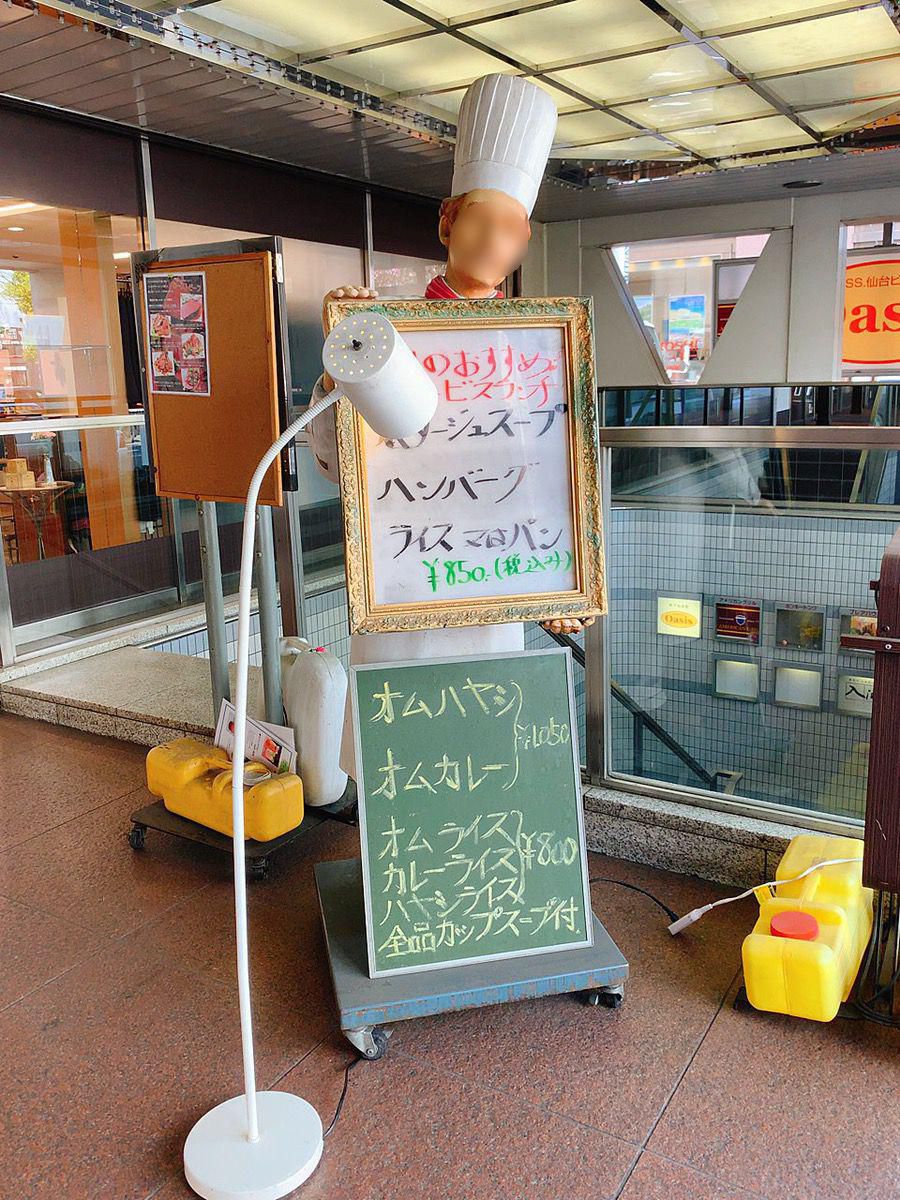 のおすすめ
ビスランチ
タージュスープ
ハンバーグ
ライス マロパン
¥850.(税込み)
オムハヤシ
オムカレー
¥1,050
オムライス
カレーライス
ハヤシライス
¥800
全品カップスープ付.
SS.仙台ビ
Oas
Oasis
アメリカングリル